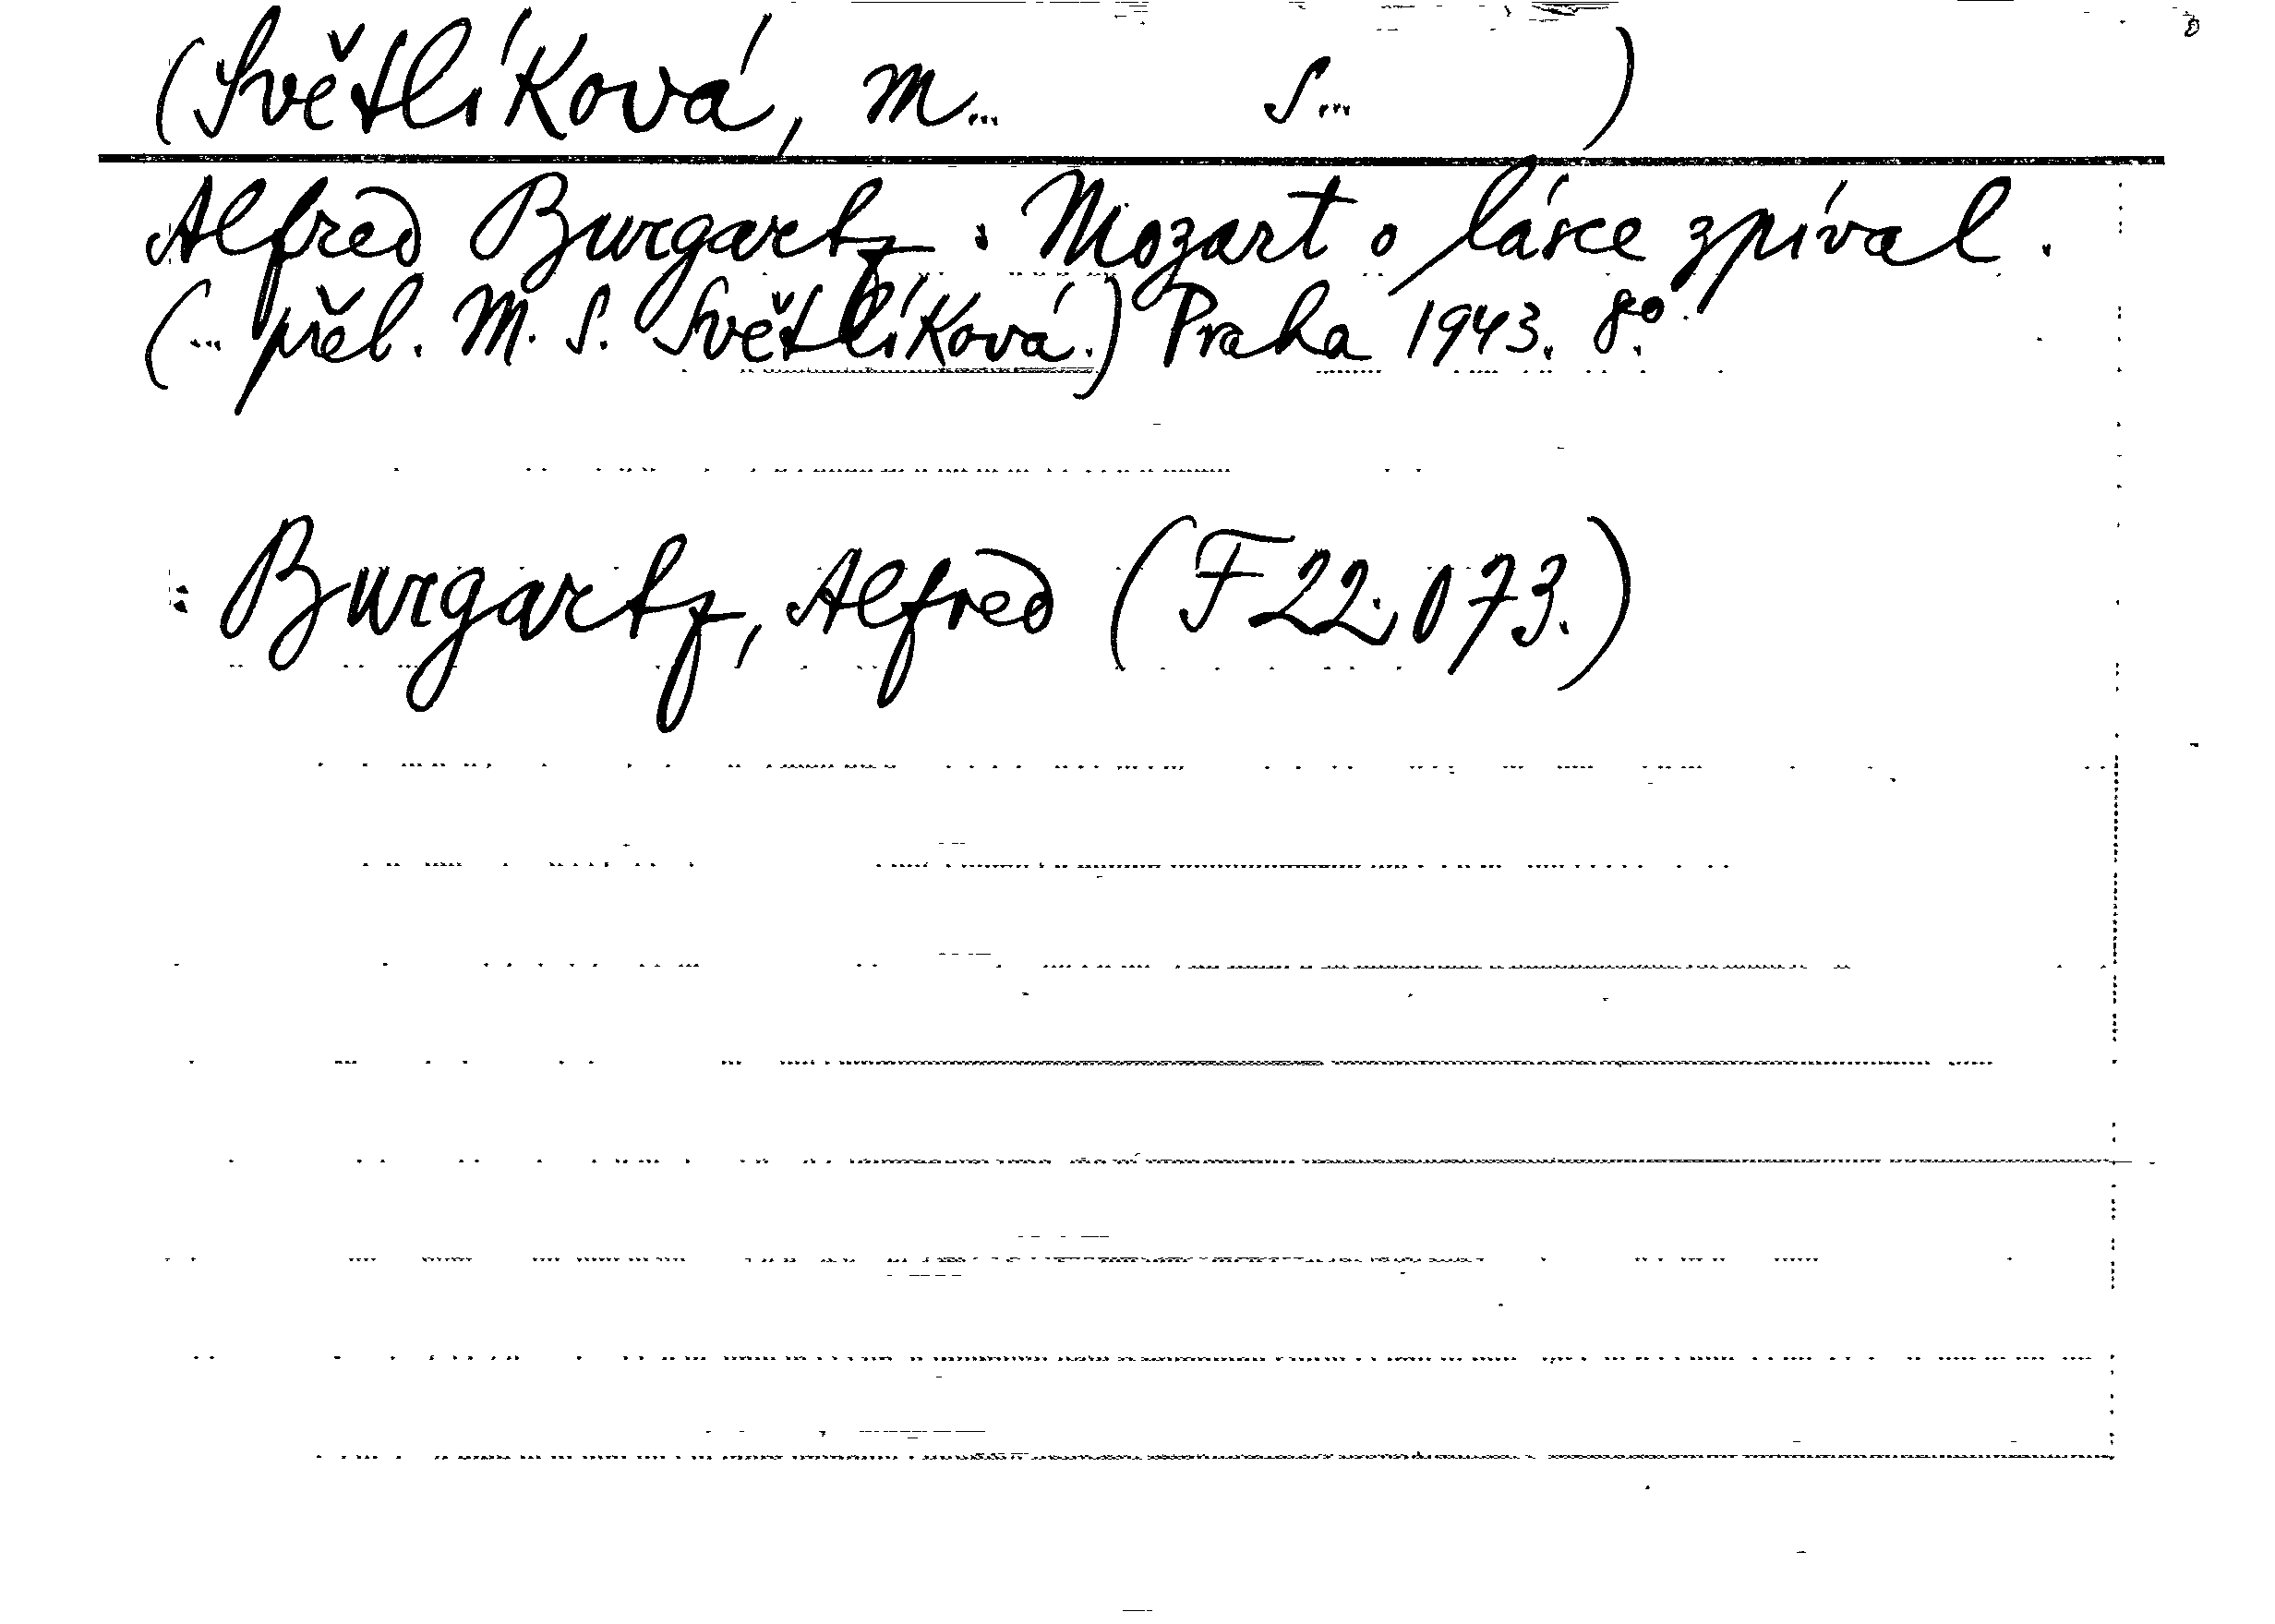 (Světlíková, M... S... )
Alfred Burgartz: Mozart o lásce zpíval.
(... přel. M. S. Světlíková.) Praha 1943. 8º.
: Burgartz, Alfred (F 22.073.)